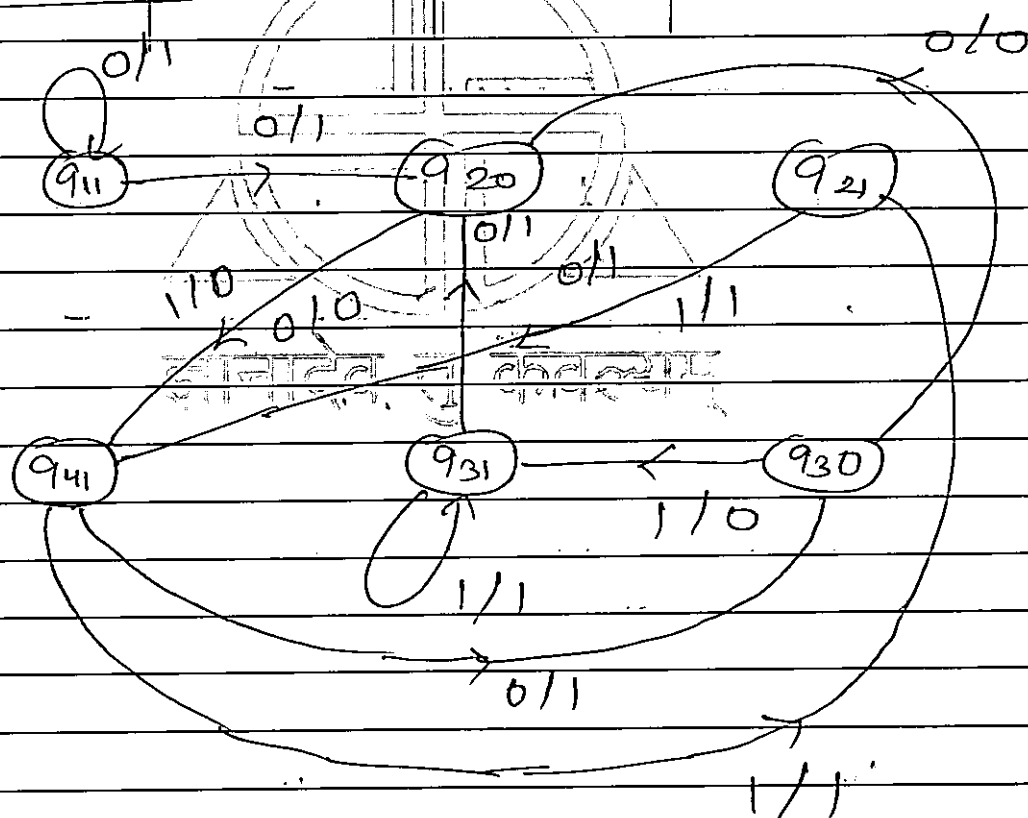 0/1
0/0
0/1
q11
q20
q21
0/1
0/1
1/0
0/0
1/1
q41
q31
q30
1/0
1/1
0/1
1/1